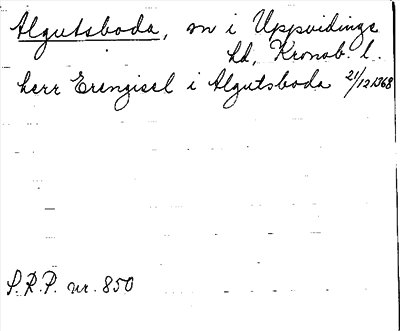 Algutsboda, sn i Uppvidinge
hd, Kronob. l.
herr Erengisel i Algutsboda 21/12 1368
S.R.P. nr. 850